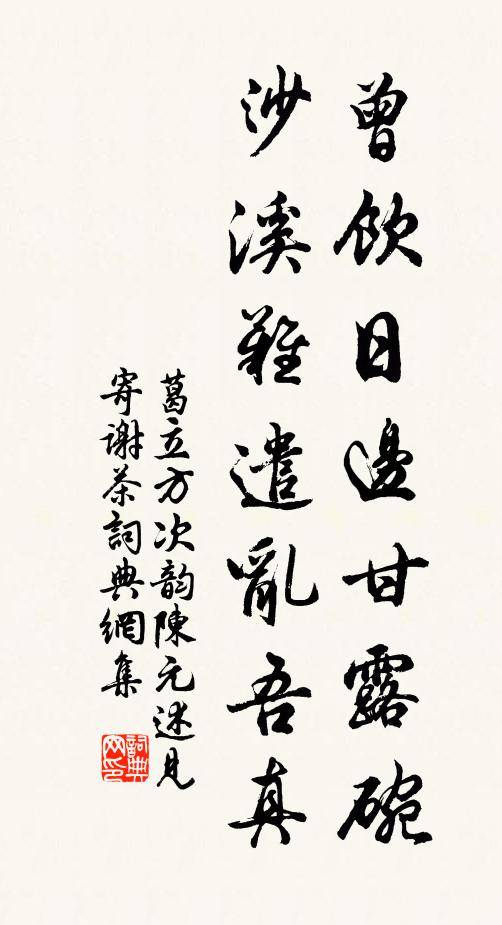 曾飲日邊甘露碗
沙溪難遣亂吾真
葛立方次韵陳元述見
寄謝茶詞典網集
詞典网印